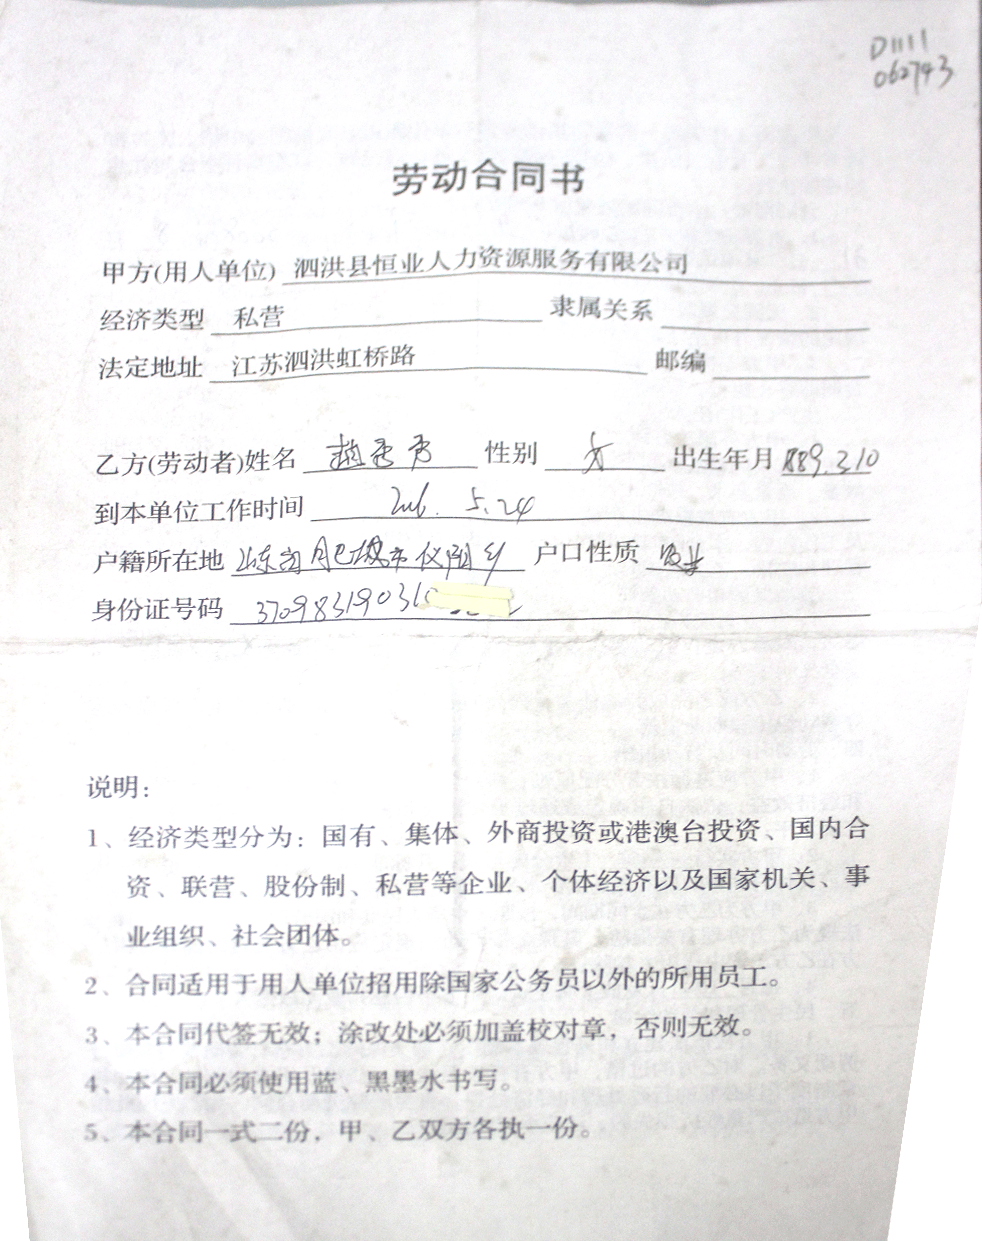 D1111
062743
劳动合同书
甲方(用人单位) 泗洪县恒业人力资源服务有限公司
经济类型 私营 隶属关系
法定地址 江苏泗洪虹桥路 邮编
乙方(劳动者)姓名 赵 性别 女 出生年月 1889.310
到本单位工作时间 5.24
户籍所在地 山东 仪阳乡 户口性质 农业
身份证号码 37098319031
说明：
1、经济类型分为：国有、集体、外商投资或港澳台投资、国内合
资、联营、股份制、私营等企业、个体经济以及国家机关、事
业组织、社会团体。
2、合同适用于用人单位招用除国家公务员以外的所用员工。
3、本合同代签无效；涂改处必须加盖校对章，否则无效。
4、本合同必须使用蓝、黑墨水书写。
5、本合同一式二份，甲、乙双方各执一份。